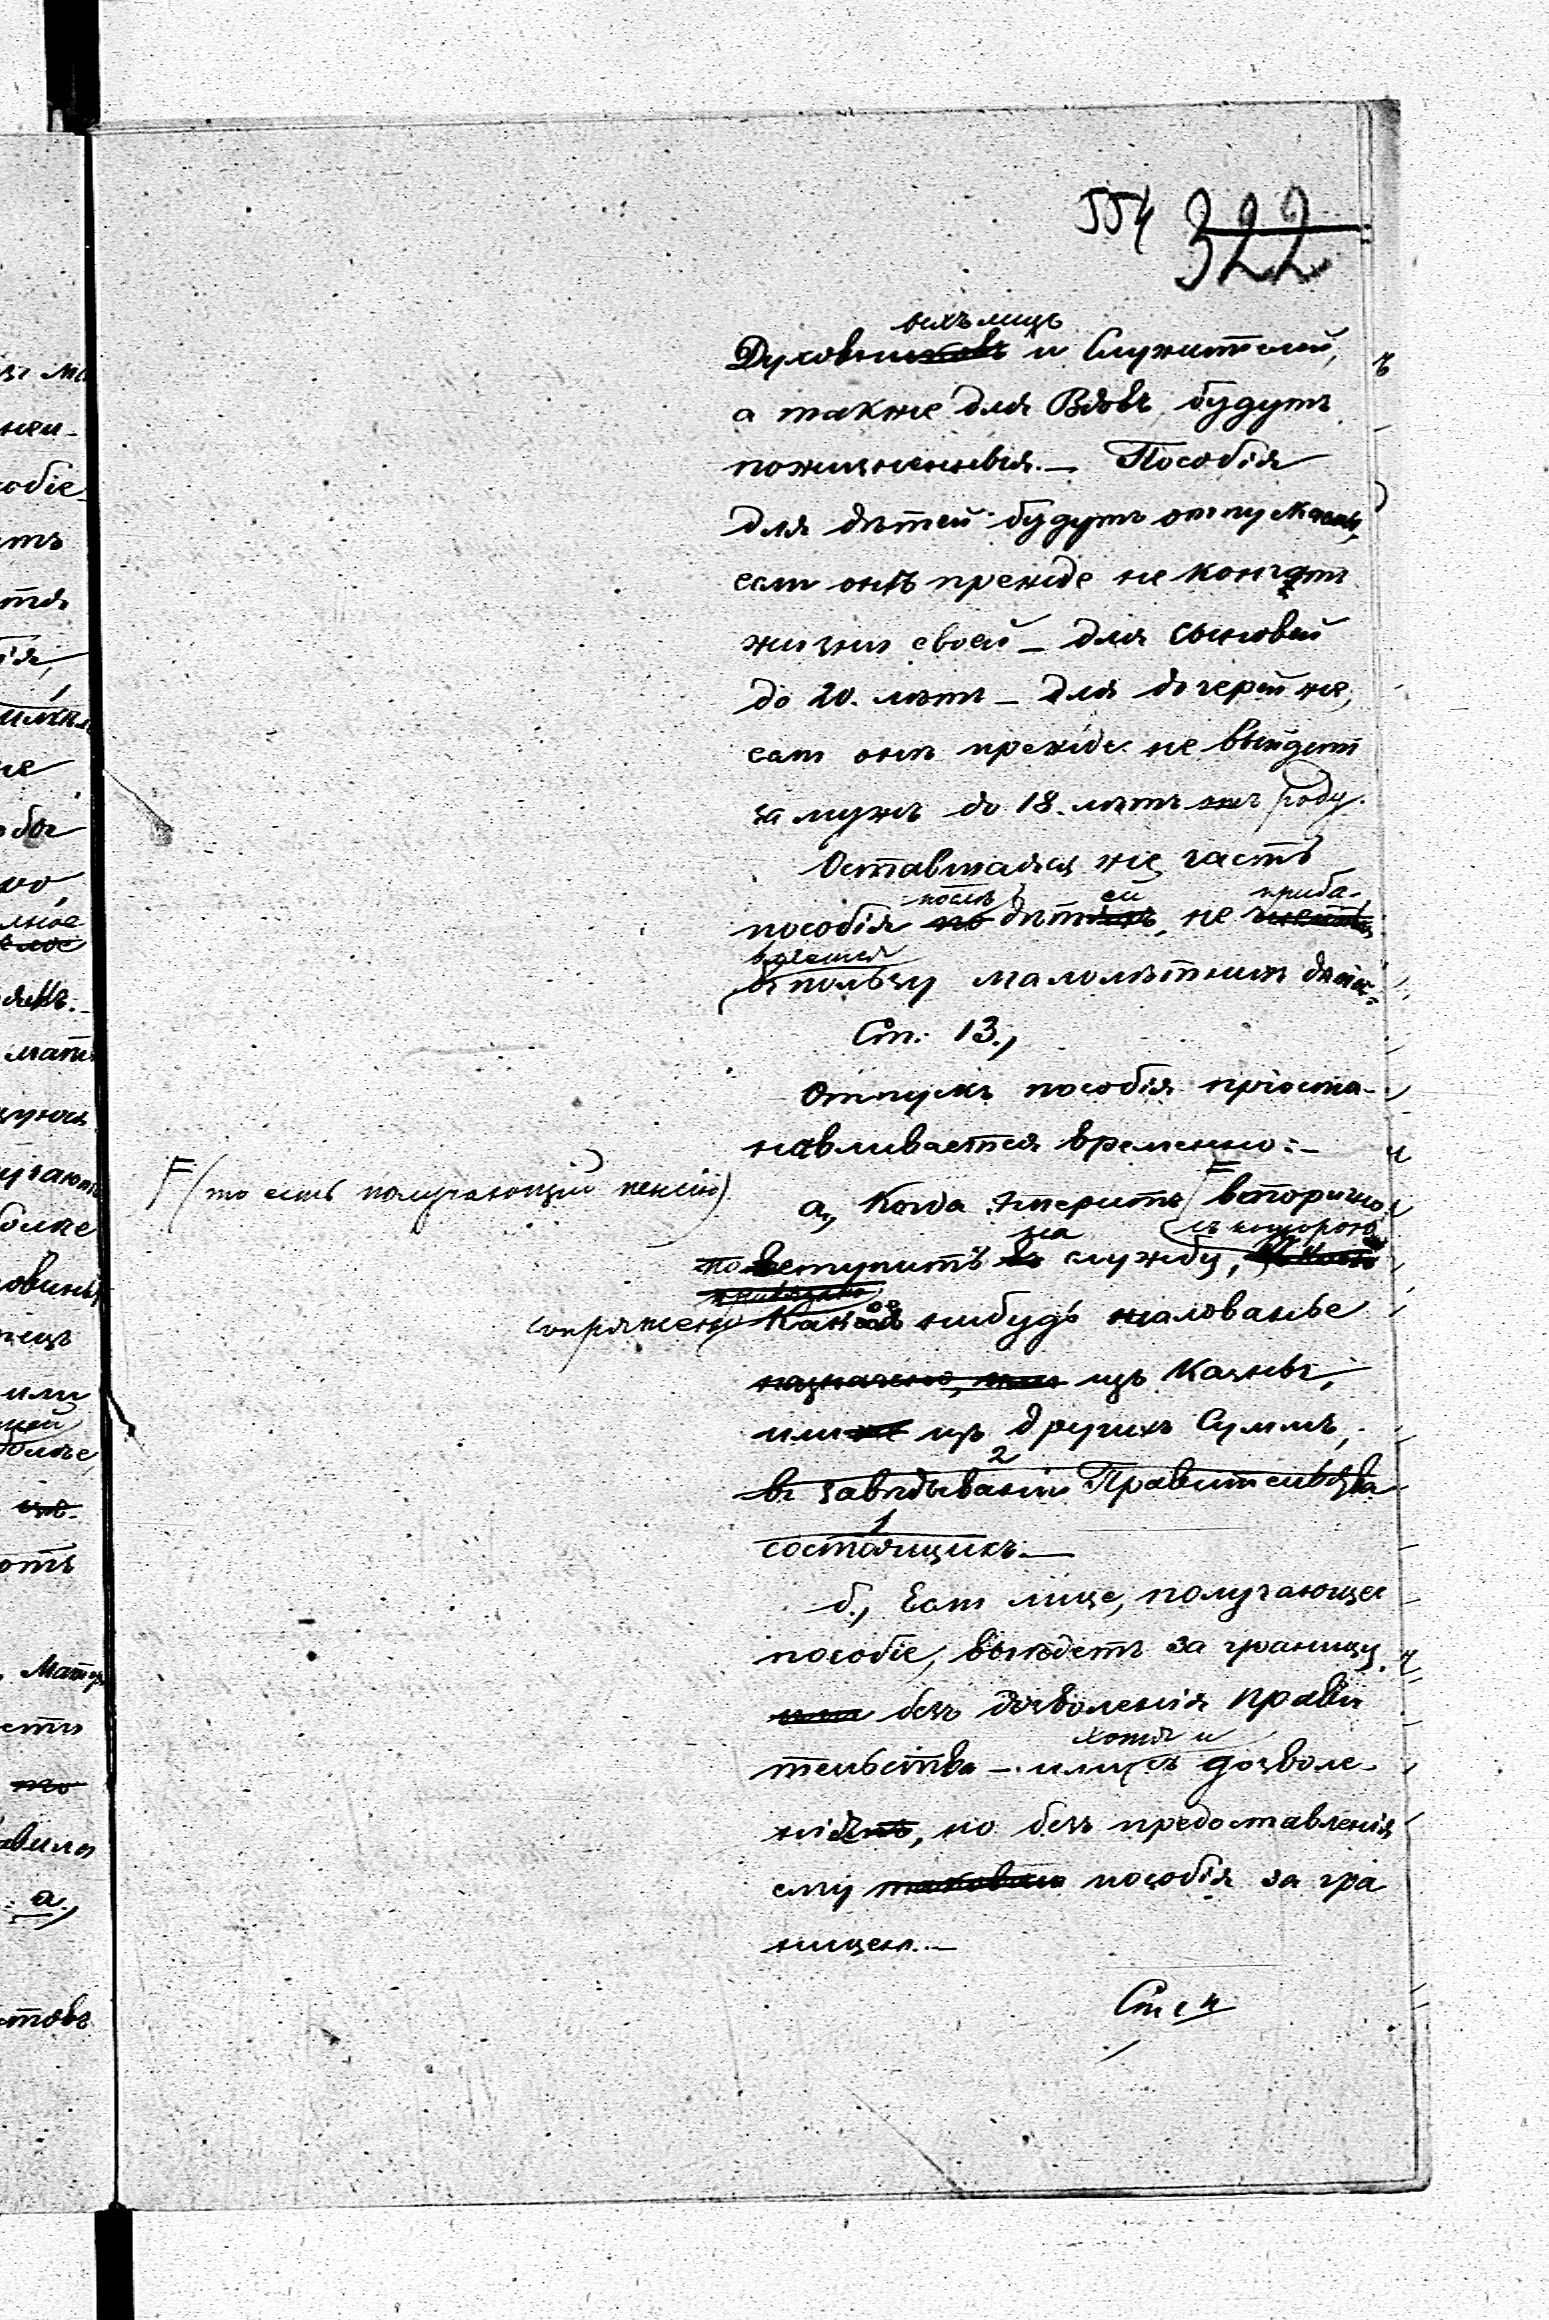 554 322
ныхъ лицъ
Духовников и Служителей,
а также для Вдовъ будутъ
пожизненныя. — Пособія
для дѣтей будутъ отпускаемы,
если онѣ прежде не кончатъ
жизни своей — для сыновей
до 20. лѣтъ — для дочерей же,
если онѣ прежде не выйдутъ
за мужъ до 18. лѣтъ отъ роду.
Оставшаяся же часть
послѣ ей приба-
пособія по дѣтямъ, не
вляется
въ пользу малолѣтнихъ
Ст. 13.,
Отпускъ пособія пріоста-
навливается временно: —
F (то есть получающій пенсію)
а, Когда Эмеритъ F вторично
на съ которою
вступитъ въ службу,
привязано
сопряжено какое нибудь жалованье
назначено, или изъ Казны,
или же изъ другихъ Суммъ,
2
въ завѣдываніи Правительства
1
состоящихъ. —
б., Если лице, получающее
пособіе, выѣдетъ за границу
или безъ дозволенія прави
хотя и
тельства — или съ дозволе-
нія, но безъ предоставленія
ему таковаго пособія за гра
ницею. —